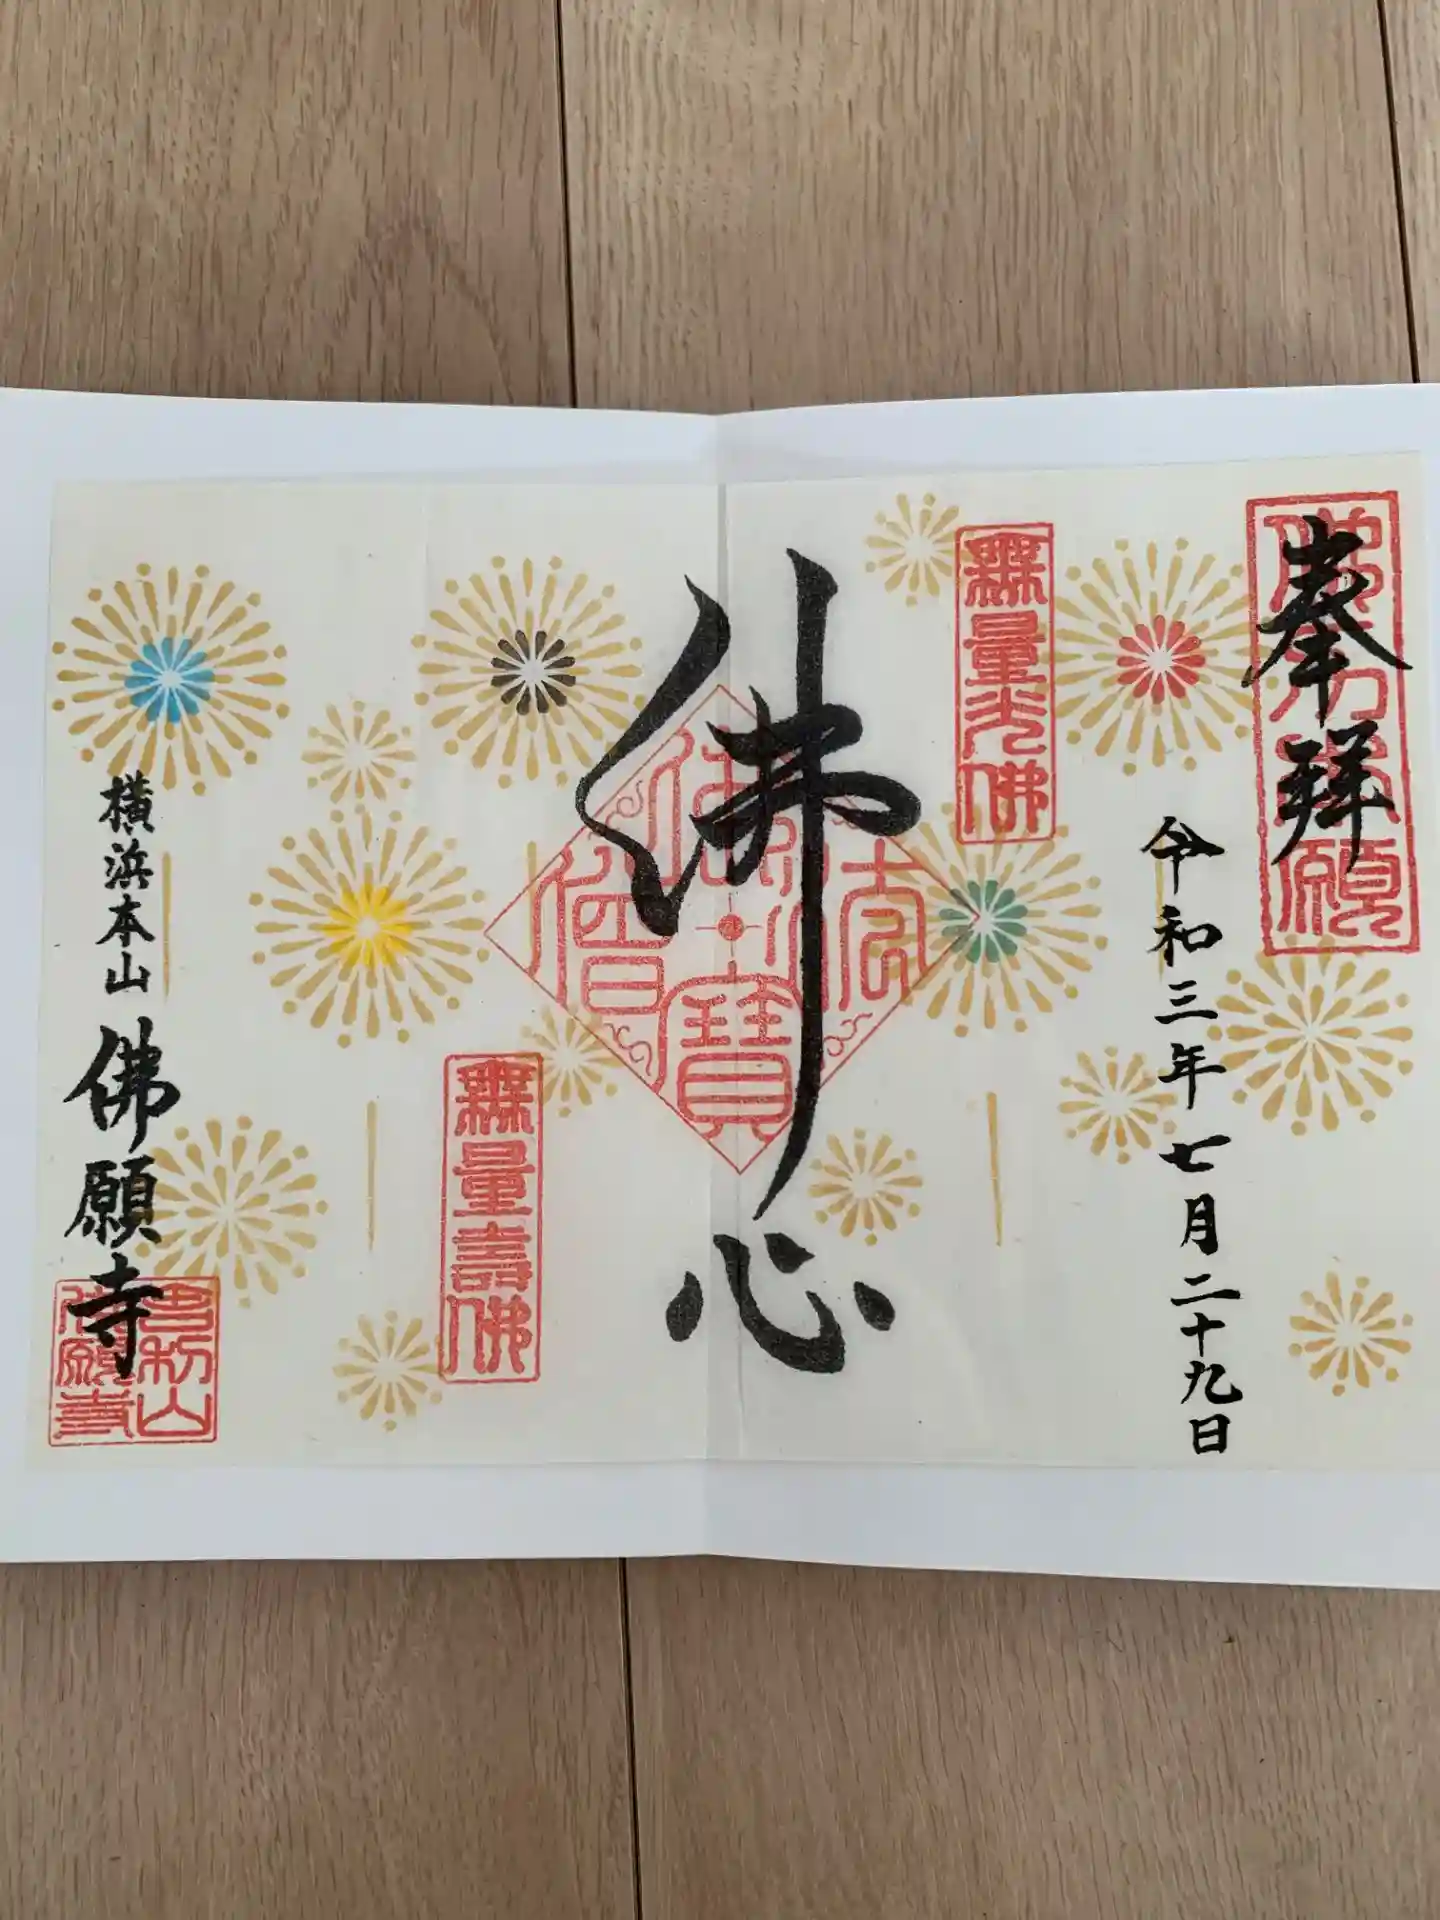 奉拜
令和三年七月二十九日
無量光佛
佛心
佛法僧寶
無量壽佛
横浜本山
佛願寺